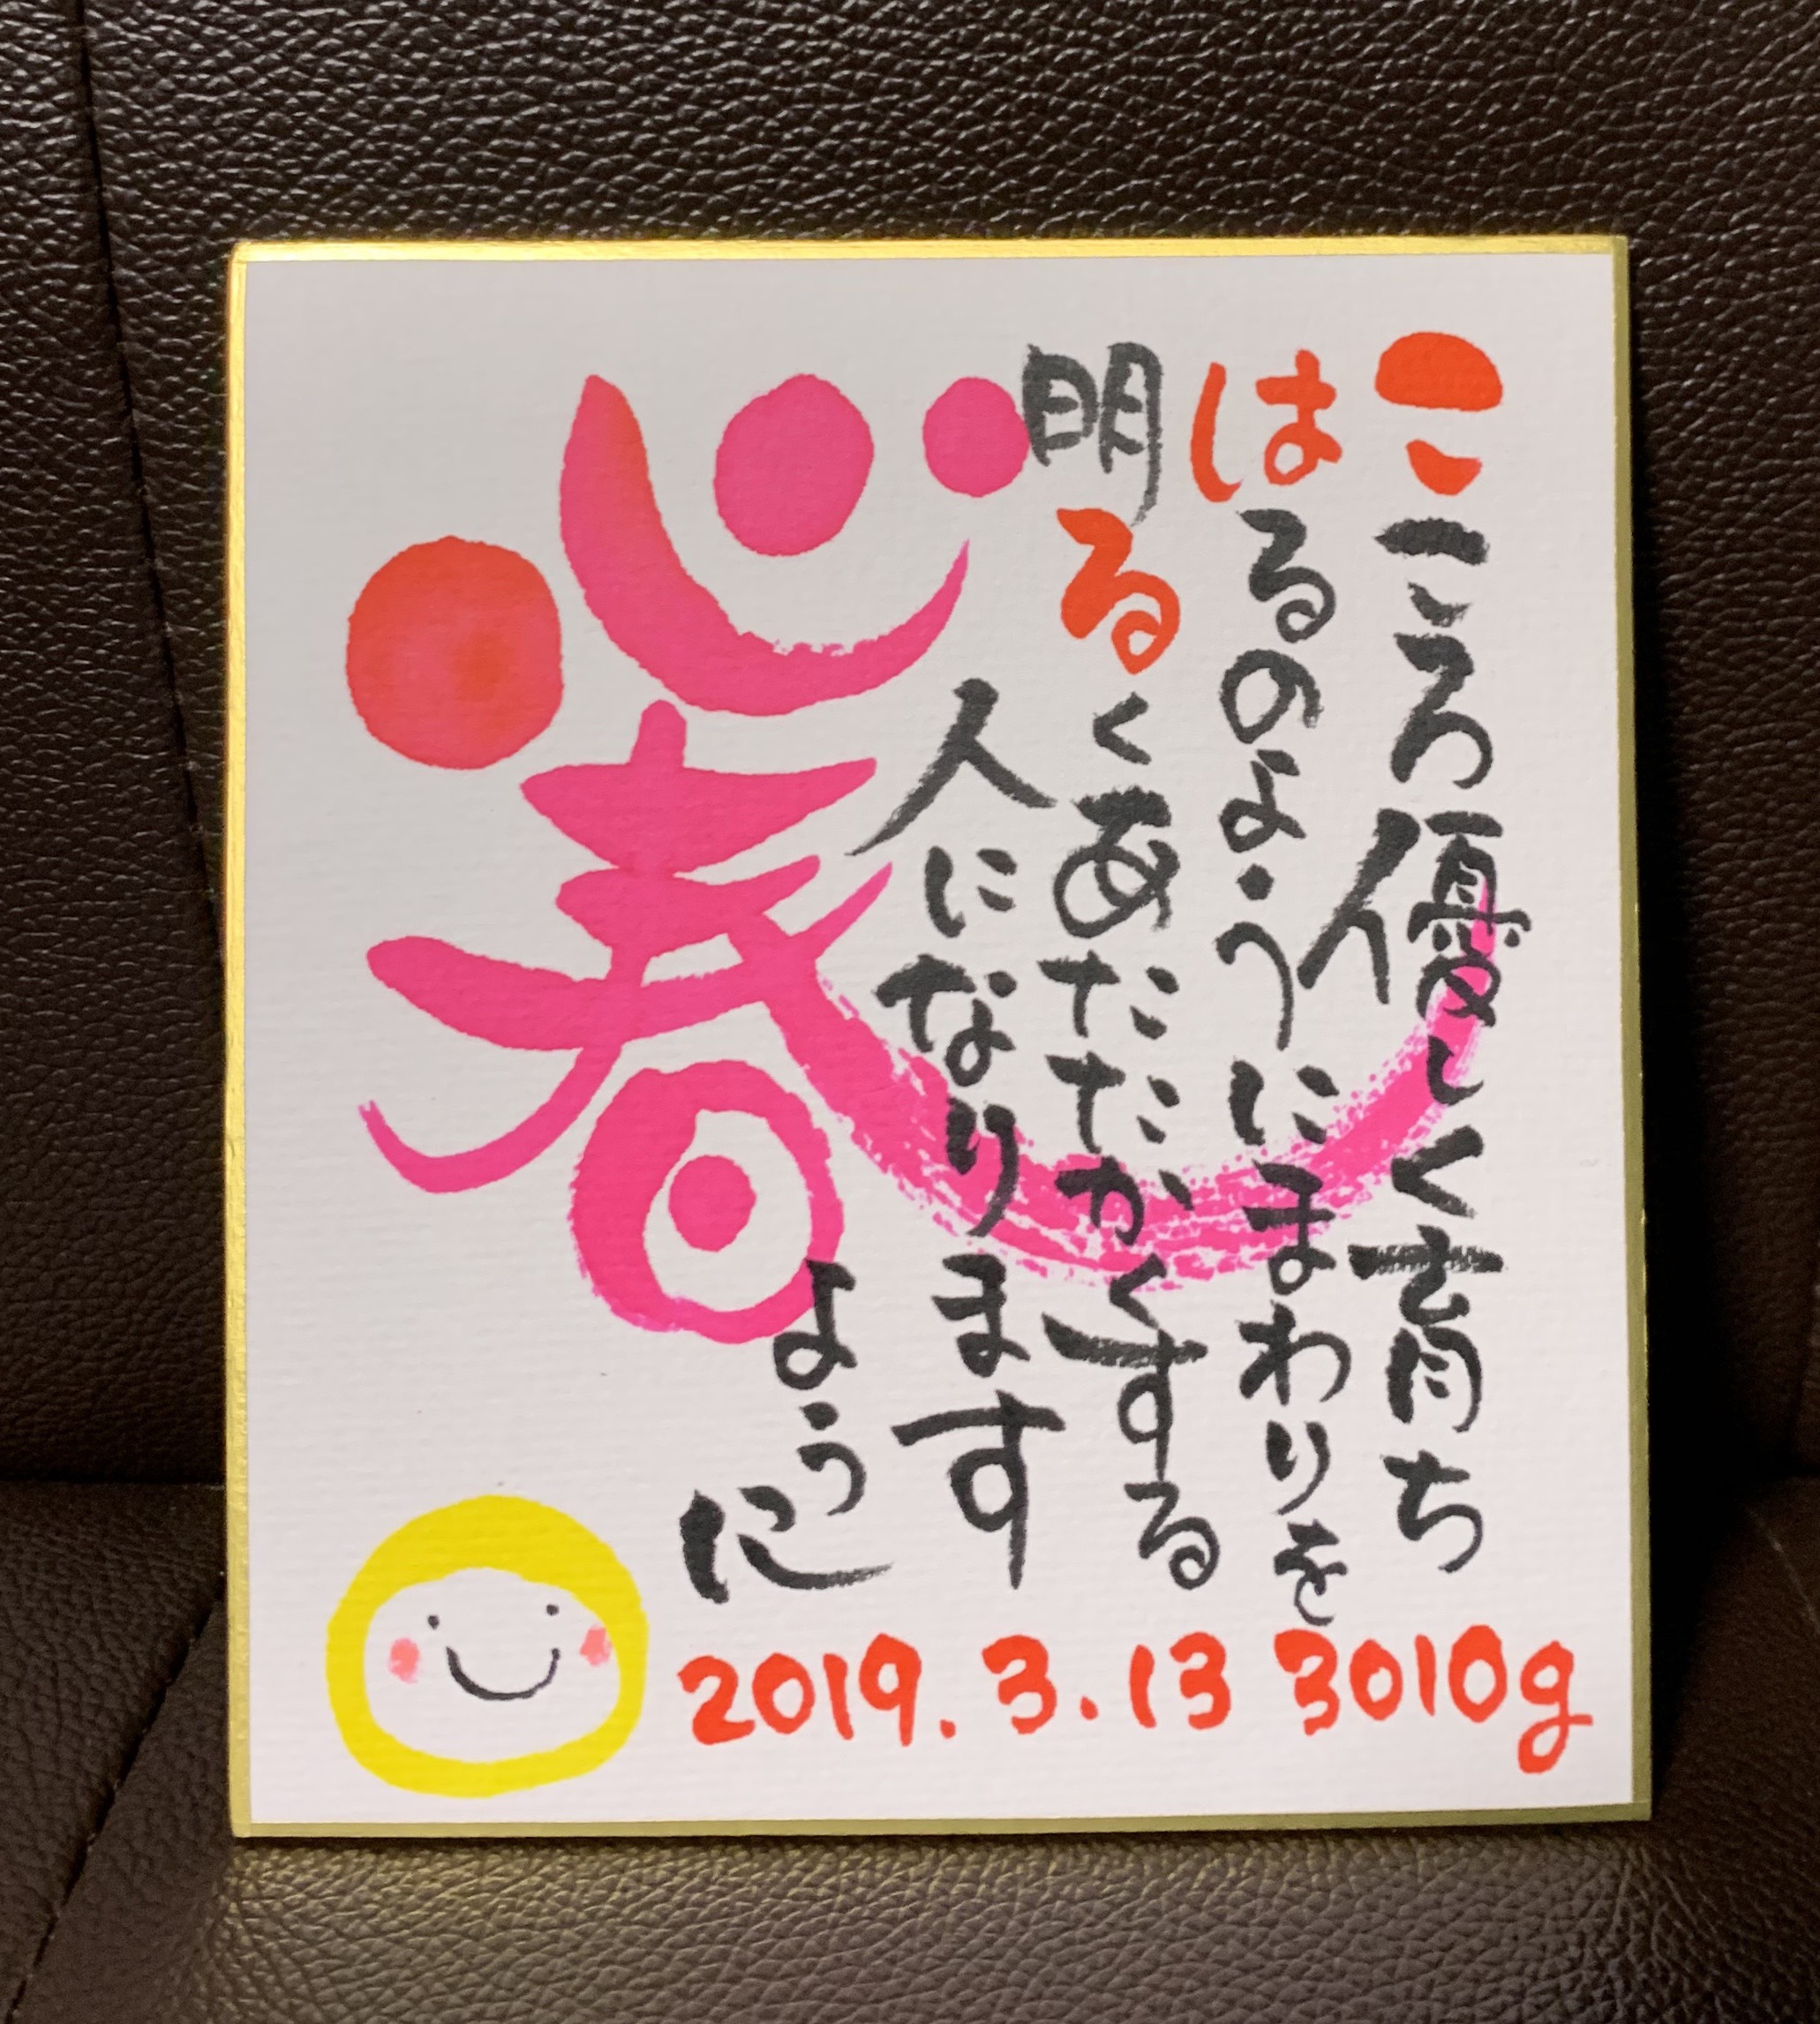 こころ優しく育ち
はるのようにまわりを
明るくあたたかくする
人になります
ように
心春
2019.3.13 3010g